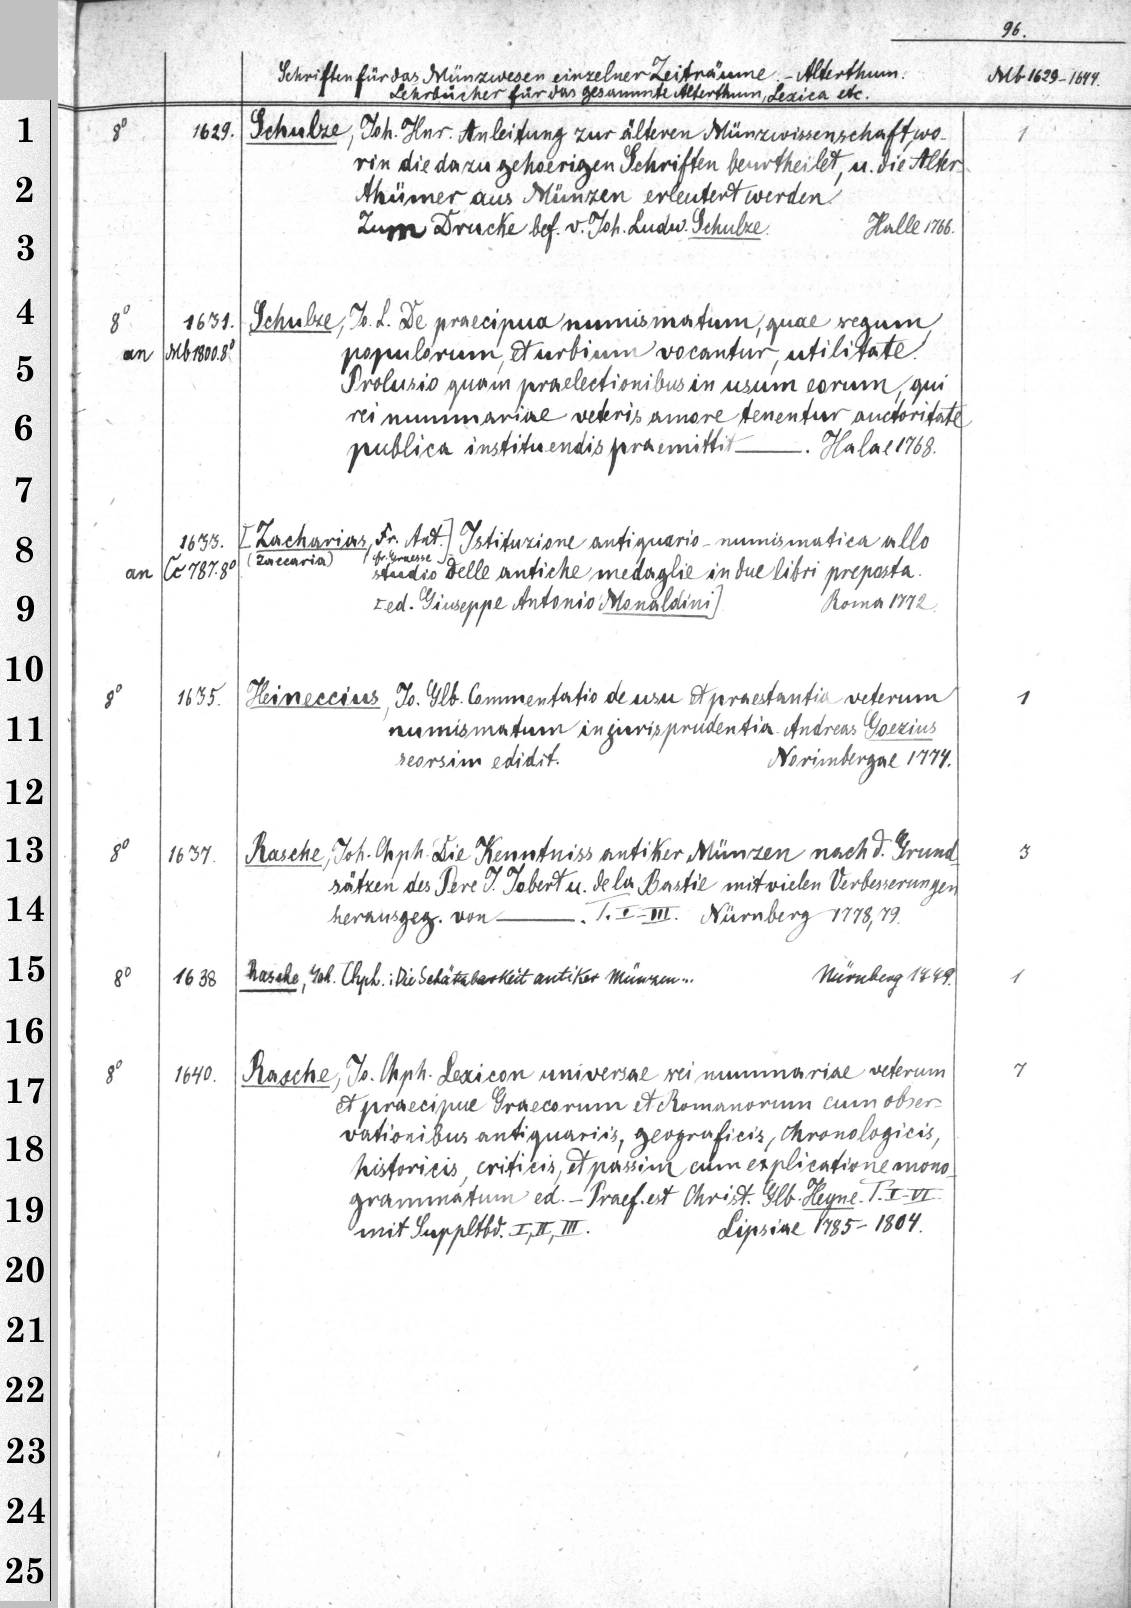 96.
Schriften für das Münzwesen einzelner Zeiträume. - Alterthum. Mb 1629-1644.
Lehrbücher für das gesammte Alterthum, Lexica etc.
1 8° 1629. Schulze, Joh. Hnr. Anleitung zur älteren Münzwissenschaft, wo- 1
rin die dazu gehoerigen Schriften beurtheilet, u. die Alter-
2 thümer aus Münzen erleutert werden
3 Zum Drucke bef. v. Joh. Ludw. Schulze. Halle 1766.
4 8° 1631. Schulze, Jo. L. De praecipua numismatum, quae regum,
an Mb 1800.8° populorum, et urbium vocantur, utilitate.
5 Prolusio quam praelectionibus in usum eorum, qui
6 rei nummariae veteris amore tenentur auctoritate
publica instituendis praemittit ———. Halae 1768.
7
8 1633. [Zacharias, Fr. Ant.] Istituzione antiquario-numismatica allo
(Zaccaria) (fr. Graesse)
an Cc 787.8° studio delle antiche medaglie in due libri preposta.
9 [ed. Giuseppe Antonio Monaldini] Roma 1772.
10
8° 1635. Heineccius, Jo. Glb. Commentatio de usu et praestantia veterum 1
11 numismatum in jurisprudentia. Andreas Goezius
seorsim edidit. Norimbergae 1774.
12
13 8° 1637. Rasche, Joh. Chph. Die Kenntniss antiker Münzen nach d. Grund- 3
sätzen des Pere J. Jobert u. de la Bastie mit vielen Verbesserungen
14 herausgeg. von ———. T. I-III. Nürnberg 1778,79.
15 8° 1638 Rasche, Joh. Chph.: Die Schätzbarkeit antiker Münzen... Nürnberg 1779. 1
16
17 8° 1640. Rasche, Jo. Chph. Lexicon universae rei nummariae veterum 7
et praecipue Graecorum et Romanorum cum obser-
18 vationibus antiquariis, geograficis, chronologicis,
historicis, criticis, et passim cum explicatione mono-
19 grammatum ed. - Praef. est Christ. Glb. Heyne. T. I-VI.
mit Suppltbd. I, II, III. Lipsiae 1785-1804.
20
21
22
23
24
25